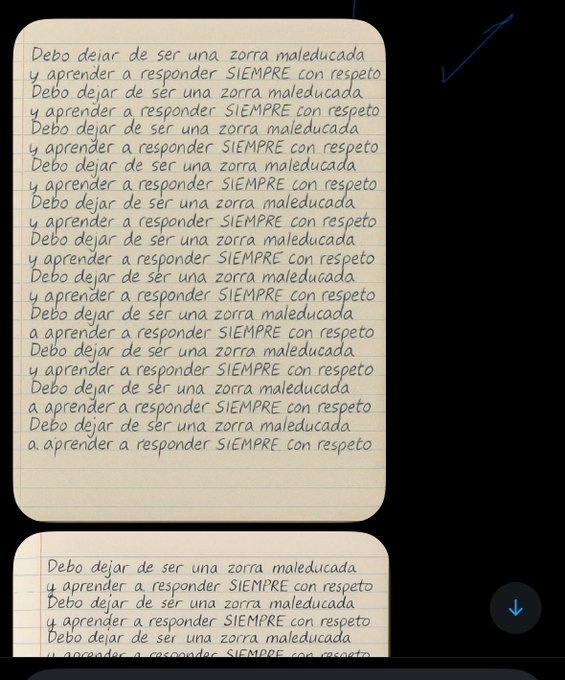 Debo dejar de ser una zorra maleducada
y aprender a responder SIEMPRE con respeto
Debo dejar de ser una zorra maleducada
y aprender a responder SIEMPRE con respeto
Debo dejar de ser una zorra maleducada
y aprender a responder SIEMPRE con respeto
Debo dejar de ser una zorra maleducada
y aprender a responder SIEMPRE con respeto
Debo dejar de ser una zorra maleducada
y aprender a responder SIEMPRE con respeto
Debo dejar de ser una zorra maleducada
y aprender a responder SIEMPRE con respeto
Debo dejar de ser una zorra maleducada
y aprender a responder SIEMPRE con respeto
Debo dejar de ser una zorra maleducada
a aprender a responder SIEMPRE con respeto
Debo dejar de ser una zorra maleducada
y aprender a responder SIEMPRE con respeto
Debo dejar de ser una zorra maleducada
a aprender a responder SIEMPRE con respeto
Debo dejar de ser una zorra maleducada
a aprender a responder SIEMPRE con respeto
Debo dejar de ser una zorra maleducada
y aprender a responder SIEMPRE con respeto
Debo dejar de ser una zorra maleducada
y aprender a responder SIEMPRE con respeto
Debo dejar de ser una zorra maleducada
y aprender a responder SIEMPRE con respeto